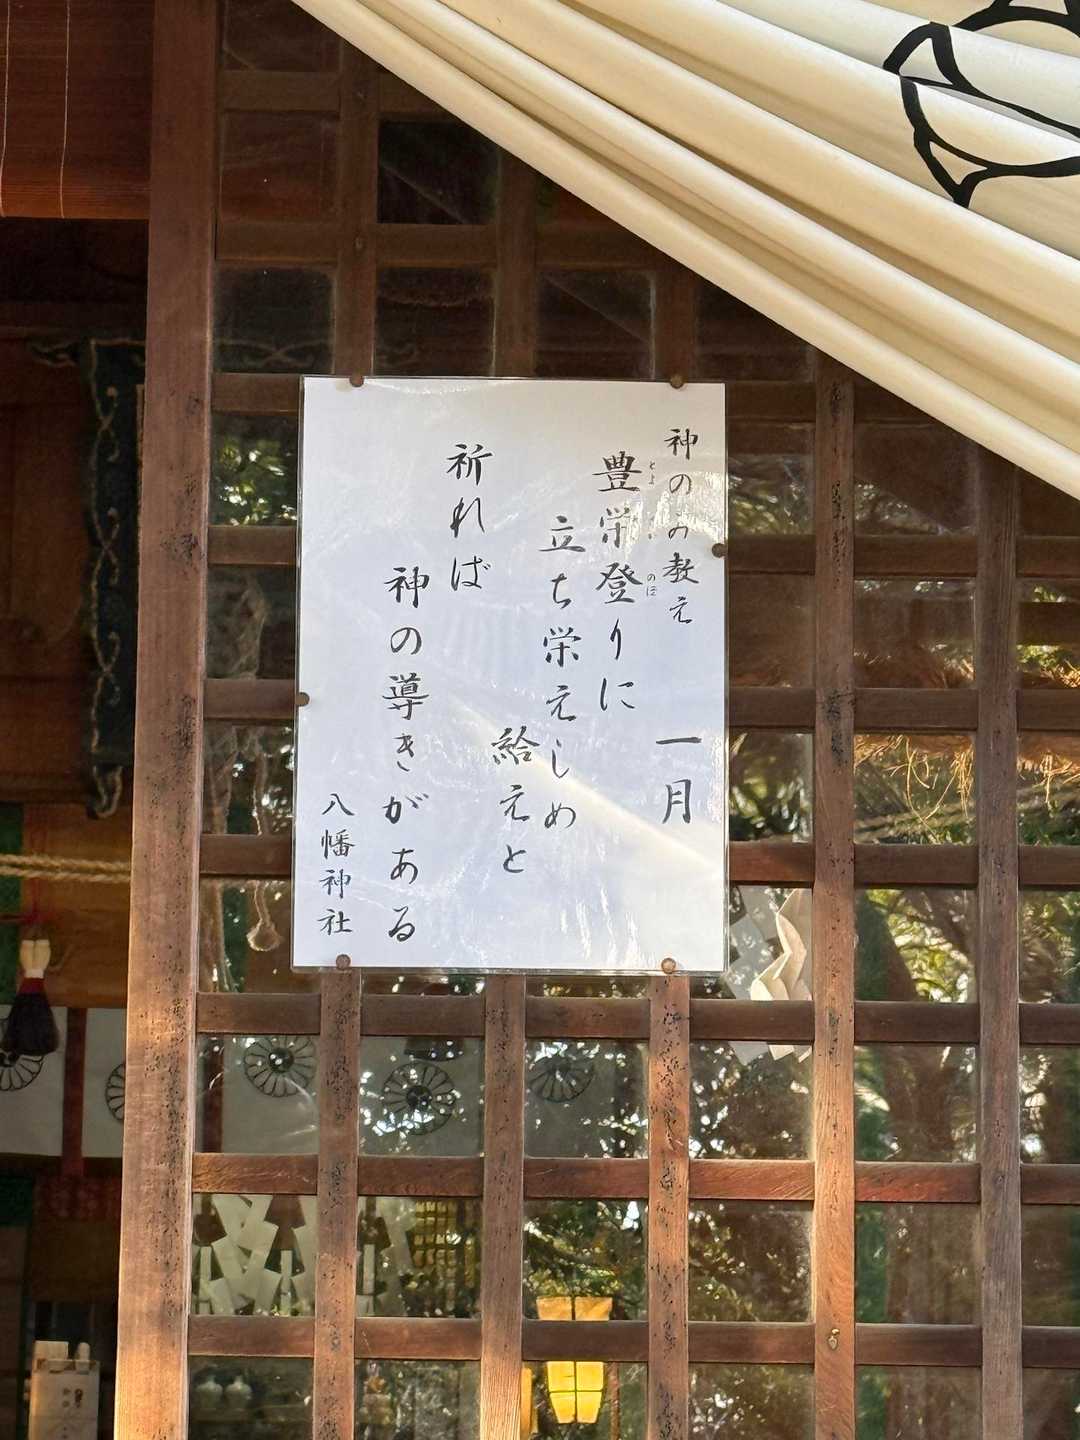 神のみ教え 一月
豊栄登りに
立ち栄えしめ
給えと
祈れば
神の導きがある
八幡神社